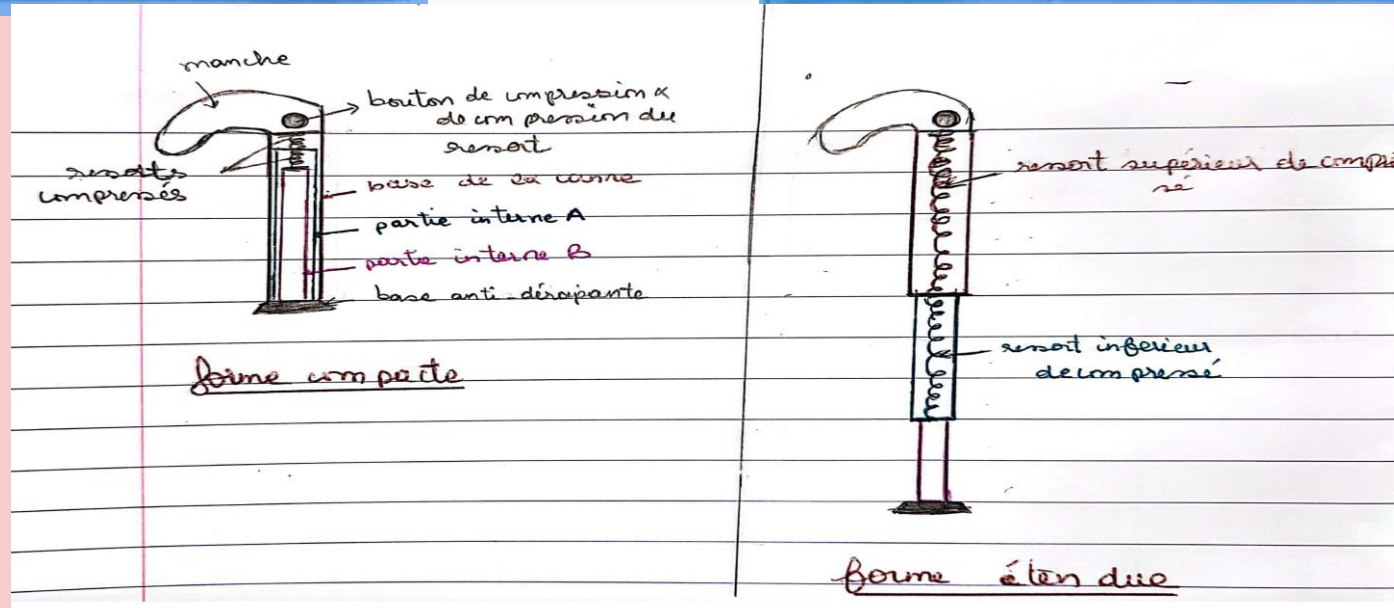 manche
bouton de compression &
de compression du
ressort
ressorts
compressés
base de la canne
partie interne A
partie interne B
base anti-dérapante
forme compacte
ressort supérieur de compres
sé
ressort inferieur
decompressé
forme étendue